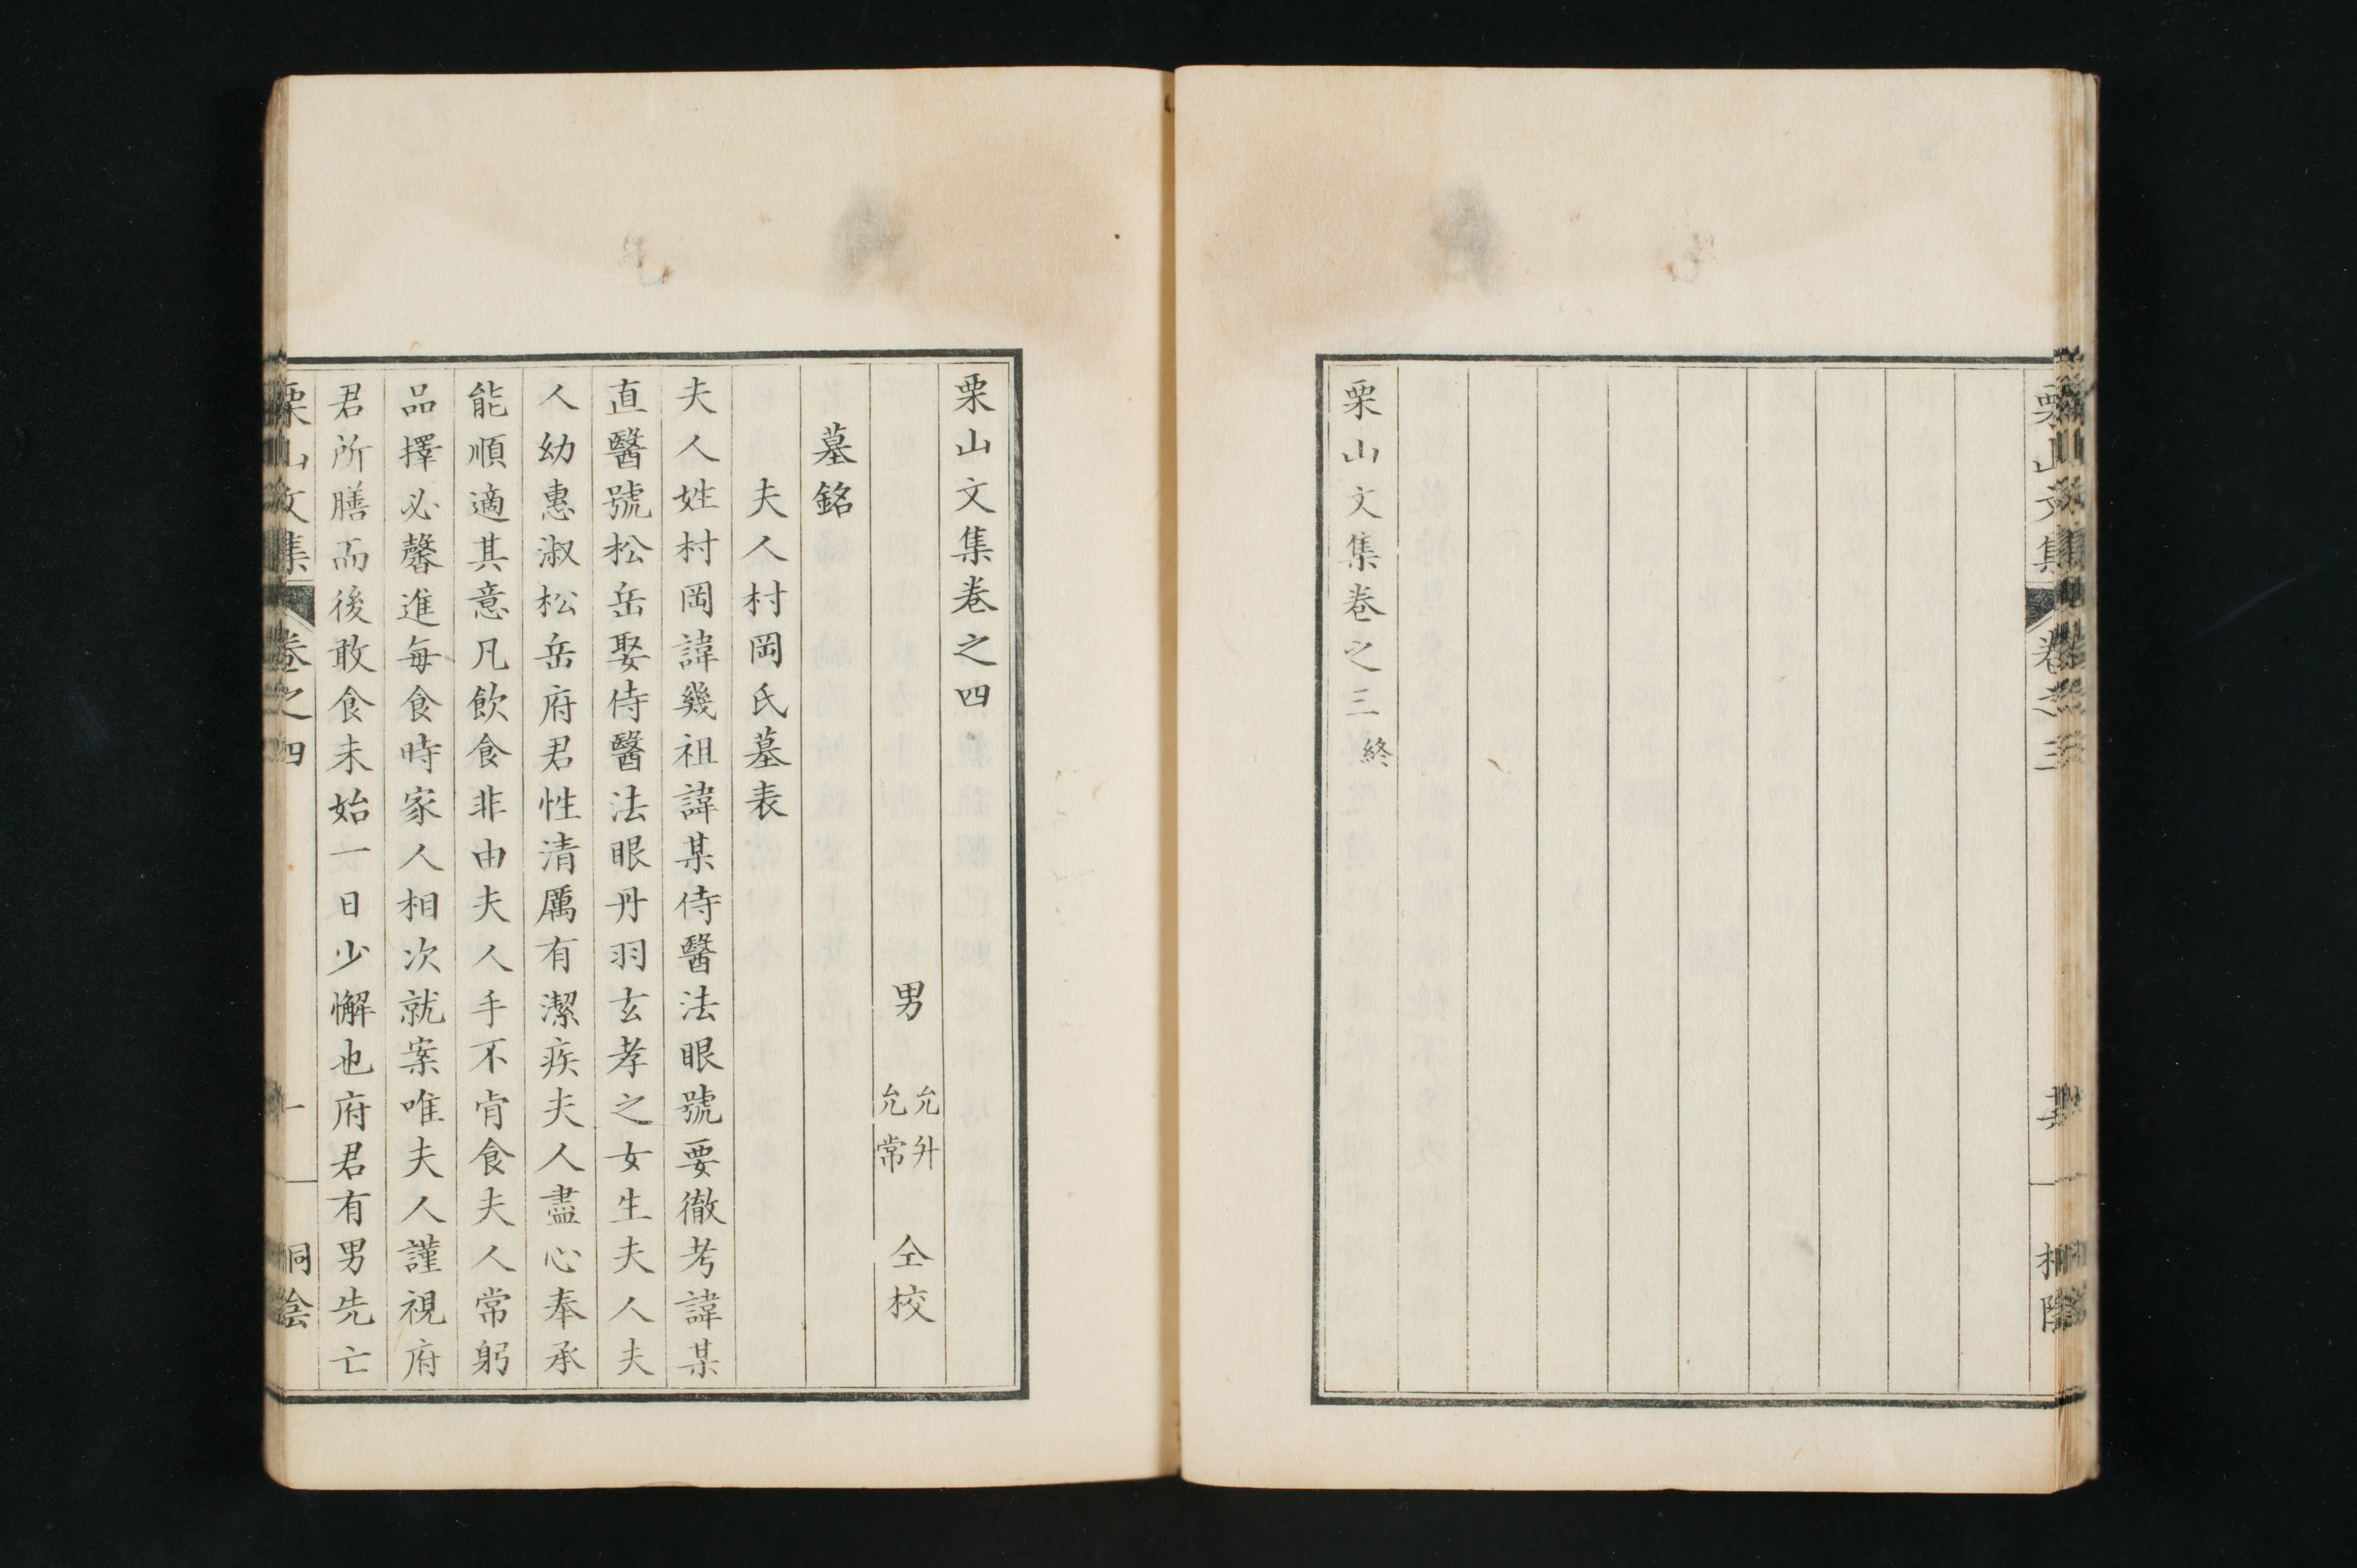 栗山文集卷之三終
栗山文集卷之四
男 允升 允常 仝校
墓銘
夫人村岡氏墓表
夫人姓村岡諱幾祖諱某侍醫法眼號要徹考諱某
直醫號松岳娶侍醫法眼丹羽玄孝之女生夫人夫
人幼惠淑松岳府君性清厲有潔疾夫人盡心奉承
能順適其意凡飲食非由夫人手不肯食夫人常躬
品擇必馨進每食時家人相次就案唯夫人謹視府
君所膳而後敢食未始一日少懈也府君有男先亡
栗山文集 卷之四 一 桐陰